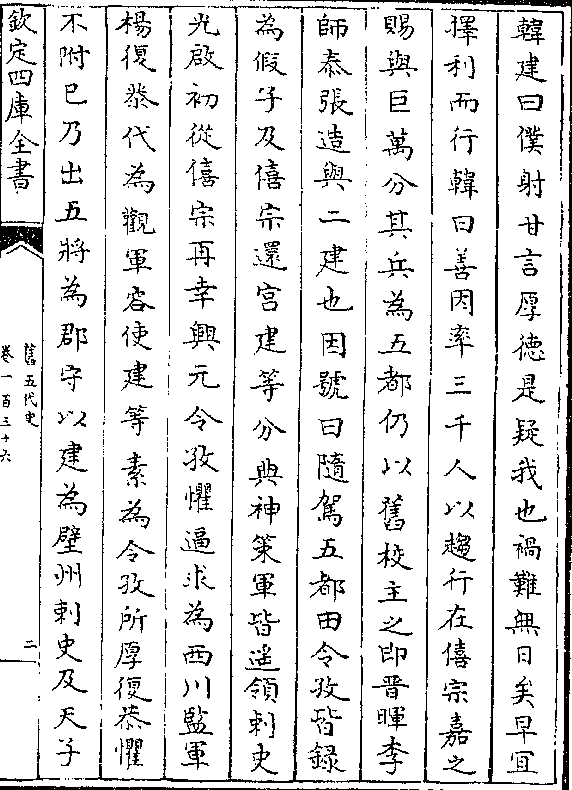 韓建曰僕射甘言厚德是疑我也禍難無日矣早宜
擇利而行韓曰善因率三千人以趨行在僖宗嘉之
賜與巨萬分其兵為五都仍以舊校主之即晉暉李
師泰張造與二建也因號曰隨駕五都田令孜皆錄
為假子及僖宗還宮建等分典神策軍皆遙領刺史
光啟初從僖宗再幸興元令孜懼逼求為西川監軍
楊復恭代為觀軍容使建等素為令孜所厚復恭懼
不附已乃出五將為郡守以建為壁州刺史及天子
欽定四庫全書
舊五代史
卷一百三十六
二